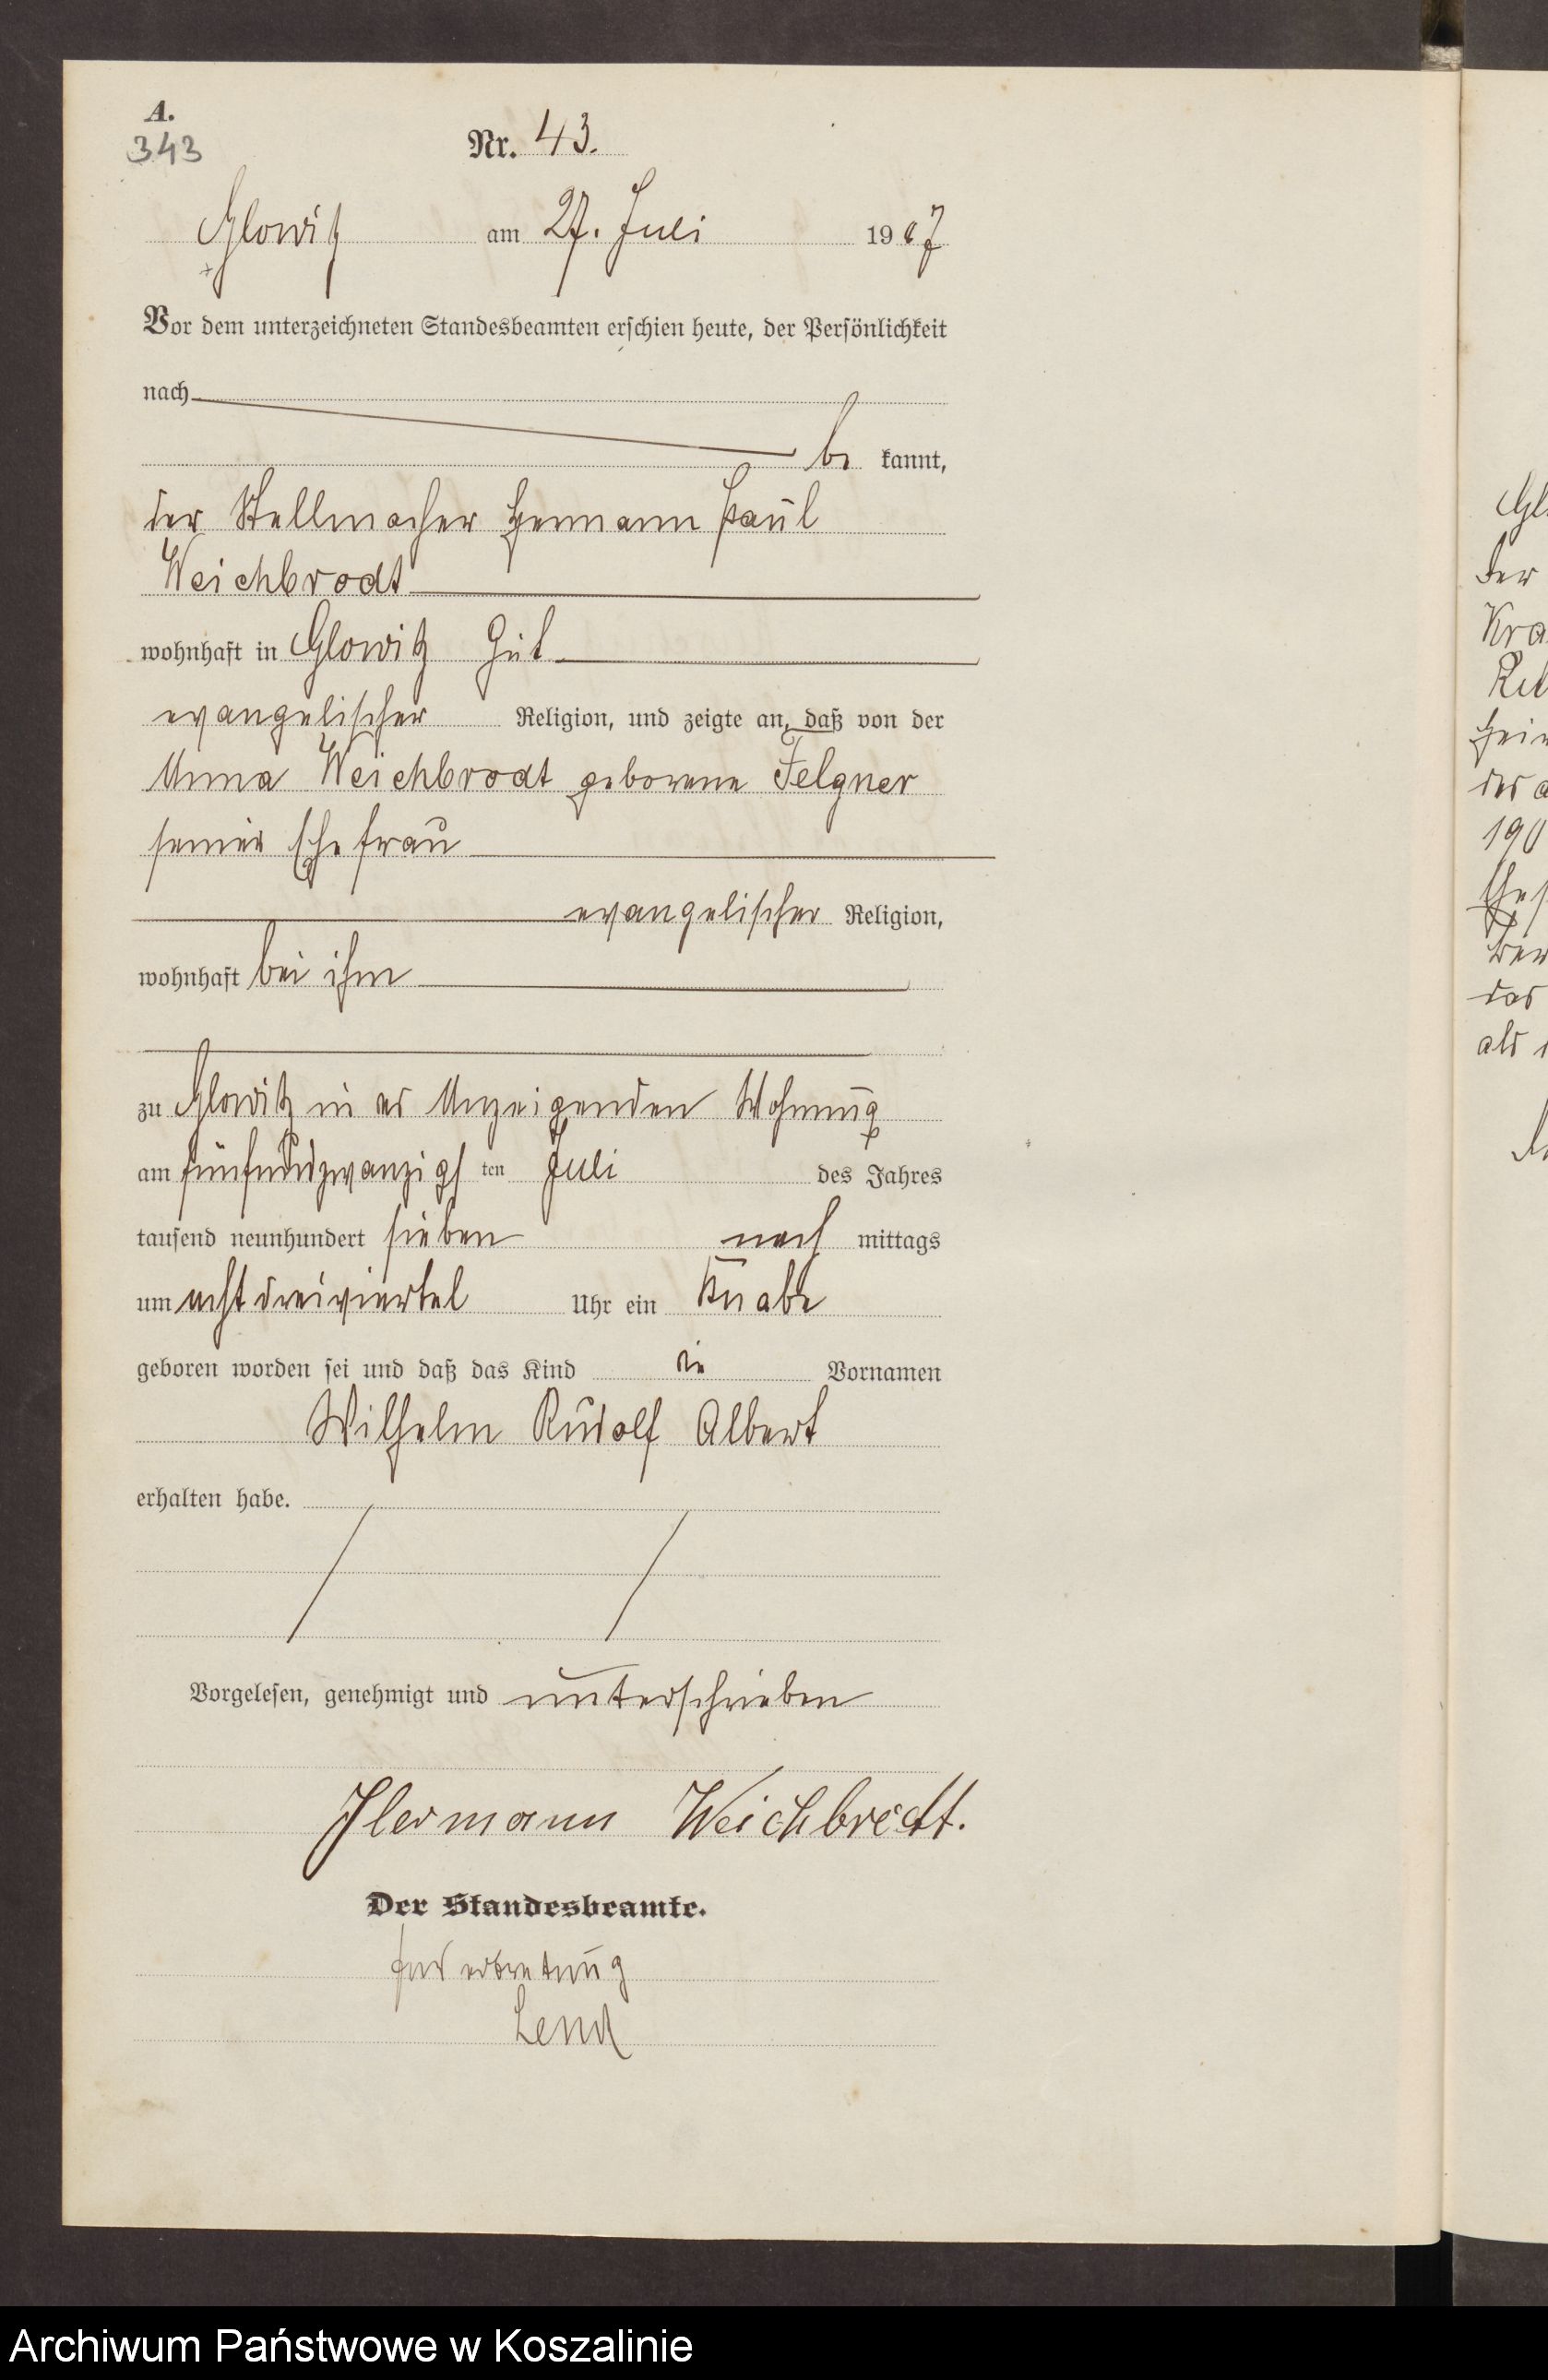 A.
343
Nr. 43.
Glowitz am 27. Juli 1907
Vor dem unterzeichneten Standesbeamten erschien heute, der Persönlichkeit
nach
be kannt,
der Stellmacher Hermann Paul
Weichbrodt
wohnhaft in Glowitz Gut
evangelischer Religion, und zeigte an, daß von der
Anna Weichbrodt geborene Felgner
seiner Ehefrau
evangelischer Religion,
wohnhaft bei ihm
zu Glowitz in des Anzeigenden Wohnung
am fünfundzwanzigsten Juli des Jahres
tausend neunhundert sieben nach mittags
um acht dreiviertel Uhr ein Knabe
geboren worden sei und daß das Kind die Vornamen
Wilhelm Rudolf Albert
erhalten habe.
Vorgelesen, genehmigt und unterschrieben
Hermann Weichbrodt.
Der Standesbeamte.
In Vertretung
Gl
der
Kra
190
das
als
Archiwum Państwowe w Koszalinie